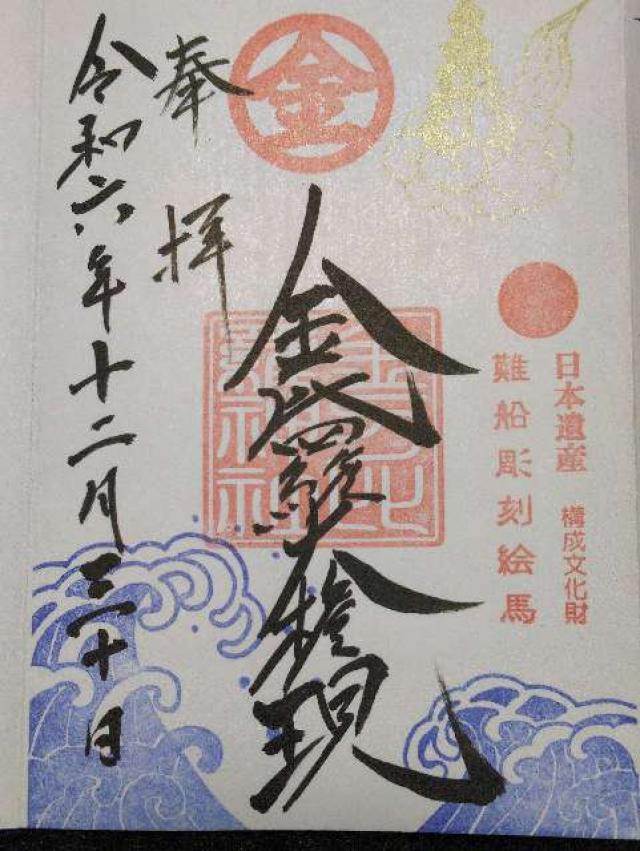 日本遺産 構成文化財
難船彫刻絵馬
金
金毘羅大権現
奉拝
令和六年十二月三十日